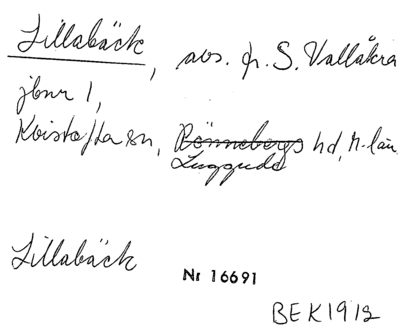 Lillabäck, avs. fr. S. Vallåkra
jbnr 1,
Kvistofta sn, Rönnebergs hd, M-län
Luggude
Lillabäck
Nr 16691
BEK1912